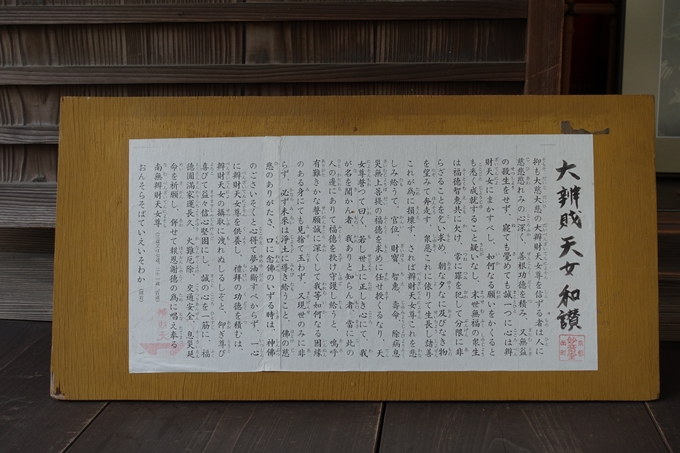 大辨財天女和讃
抑も大慈大悲の大辨財天女尊を信ずる者は人に
慈悲憐れみの心深く、善根功徳を積み、又無益
の殺生をせず、寝ても覚めても誠一つに心は辨
財天女にまかすべし、如何なる願いをかくると
も悉く成就すること疑いなし、末世無福の衆生
は福徳智恵共に欠け、常に罪を犯して分限に非
らざることを乞い求め、朝な夕なに及びなき物
を望みて奔走す、衆惡これに依りて生長し諸善
これが為に損壊す、されば辨財天女尊これを悲
しみ給うて、官位、財寶、智恵、壽命、除病息
災無上菩提の福徳を求めに任せ授くるなり、天
女尊誓って曰く、若し世上に正しき心にて、我
が名を聞かん者、我ありと知らん者、常に此の
人の邊にありて福徳を授け守護し給うと、嗚呼
有難きかな誓願誠に深くして我等如何なる因縁
のある身にても見捨て玉わず、又現世のみに非
らず、必ず未来は淨土に導き給うこと、佛の慈
悲のありがたさ、口に念佛のいずる時は、神佛
のございそくと心得て夢油斷すべからず、一心
に辨財天女尊を供養し、禮拜の功徳を積むは
辨財天女の攝取に洩れぬしるしぞと、仰ぎ尊び
喜びて益々信心堅固にし、誠の心を一筋に、福
徳圓満家運長久、火難厄除、交通安全、息災延
命を祈願し、併せて報恩謝徳の為に唱え奉る
南無辨財天女尊
おんそらそばていえいそわか
辨財天